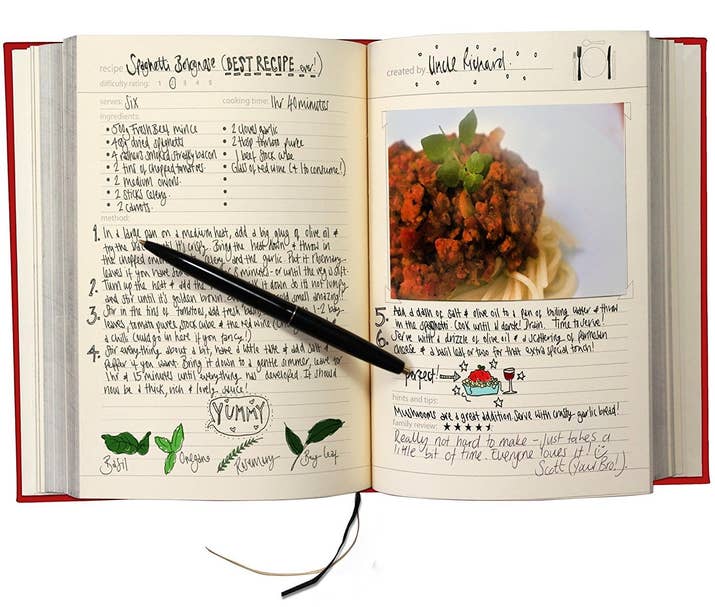 recipe Spaghetti Bolognase (BEST RECIPE ...ever!)
difficulty rating: 1 2 3 4 5
serves: Six cooking time: 1hr 40 minutes
ingredients:
• 500g Fresh Beef mince
• dried spaghetti
• 4 rashers smoked streaky bacon
• 2 tins of chopped tomatoes
• 2 medium onions
• 2 sticks celery
• 2 carrots
• 2 cloves garlic
• 2 tbsp tomato puree
• 1 beef stock cube
• Glass of red wine (+ 1 to consume!)
method:
1. In a large pan on a medium heat, add a big glug of olive oil &
fry the until it's crispy. Bring the heat down & throw in
that chopped celery and the garlic. Put it rosemary
leaves if you have minutes - or until the veg is soft.
2. Turn up the heat & add the down so it's not lumpy
and stir until it's golden brown. smell amazing!
3. Stir in the tins of tomatoes, add fresh 1-2 bay
leaves, tomato puree, stock cube & the red wine
a chilli could go in here if you fancy!)
4. Stir everything about a bit, have a little taste & add salt &
pepper if you want. Bring it down to a gentle simmer, leave for
1hr & 15 minutes until everything has developed. It should
now be a thick, rich & lovely sauce!
YUMMY
Basil Oregano Rosemary Bay-leaf
created by Uncle Richard.
5. Add a dash of salt & olive oil to a pan of boiling water & throw
in the spaghetti. Cook until al dente! Drain. Time to serve!
6. Serve with a drizzle of olive oil & a scattering of parmesan
cheese & a basil leaf or two for that extra special touch!
perfect!
hints and tips:
Mushrooms are a great addition. Serve with crusty garlic bread!
family review:
Really not hard to make - just takes a
little bit of time. Everyone loves it!
Scott (Your Bro!).